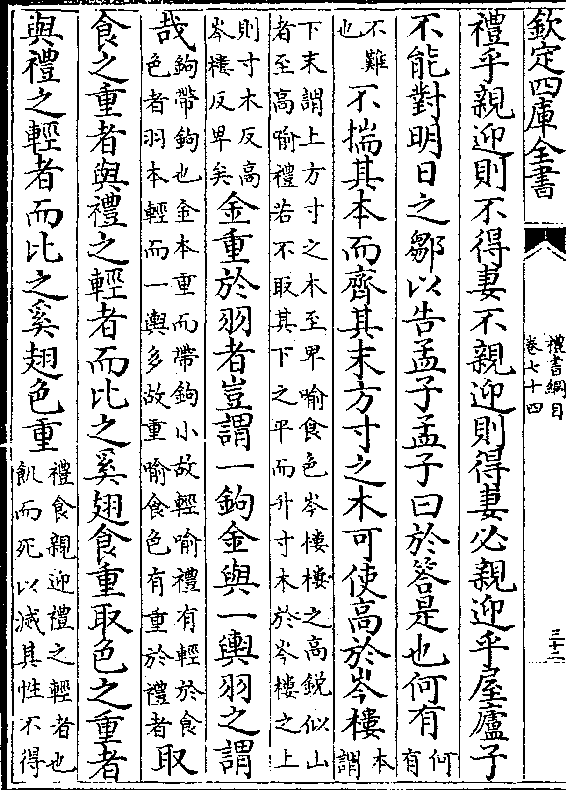 欽定四庫全書
禮書綱目
卷七十四
三十二
禮乎親迎則不得妻不親迎則得妻必親迎乎屋廬子
不能對明日之鄒以告孟子孟子曰於答是也何有何有
不難也不揣其本而齊其末方寸之木可使高於岑樓本謂
下末謂上方寸之木至卑喻食色岑樓樓之高銳似山
者至高喻禮若不取其下之平而升寸木於岑樓之上
則寸木反高岑樓反卑矣金重於羽者豈謂一鉤金與一輿羽之謂
哉鉤帶鉤也金本重而帶鉤小故輕喻禮有輕於食色者羽本輕而一輿多故重喻食色有重於禮者取
食之重者與禮之輕者而比之奚翅食重取色之重者
與禮之輕者而比之奚翅色重禮食親迎禮之輕者也飢而死以滅其性不得